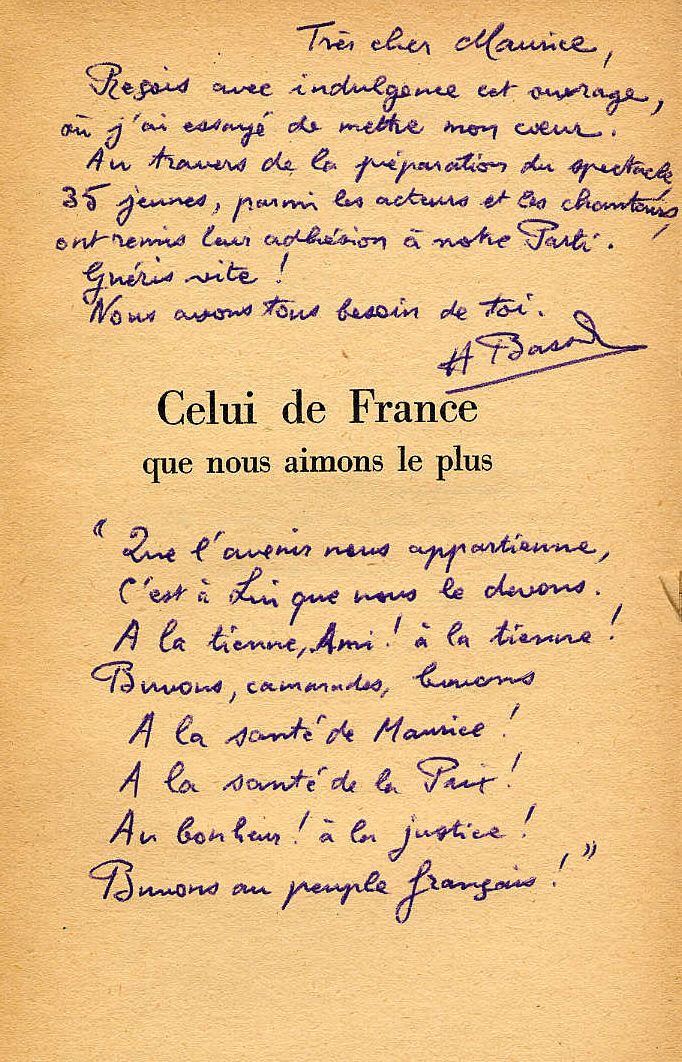 Très cher Maurice,
Reçois avec indulgence cet ouvrage,
où j'ai essayé de mettre mon cœur.
Au travers de la préparation du spectacle,
35 jeunes, parmi les acteurs et les chanteurs,
ont remis leur adhésion à notre Parti.
Guéris vite !
Nous avons tous besoin de toi.
H
Celui de France
que nous aimons le plus
“ Que l'avenir nous appartienne,
C'est à Lui que nous le devons.
A la tienne, Ami ! à la tienne !
Buvons, camarades, buvons
A la santé de Maurice !
A la santé de la Paix !
Au bonheur ! à la justice !
Buvons au peuple français ! ”